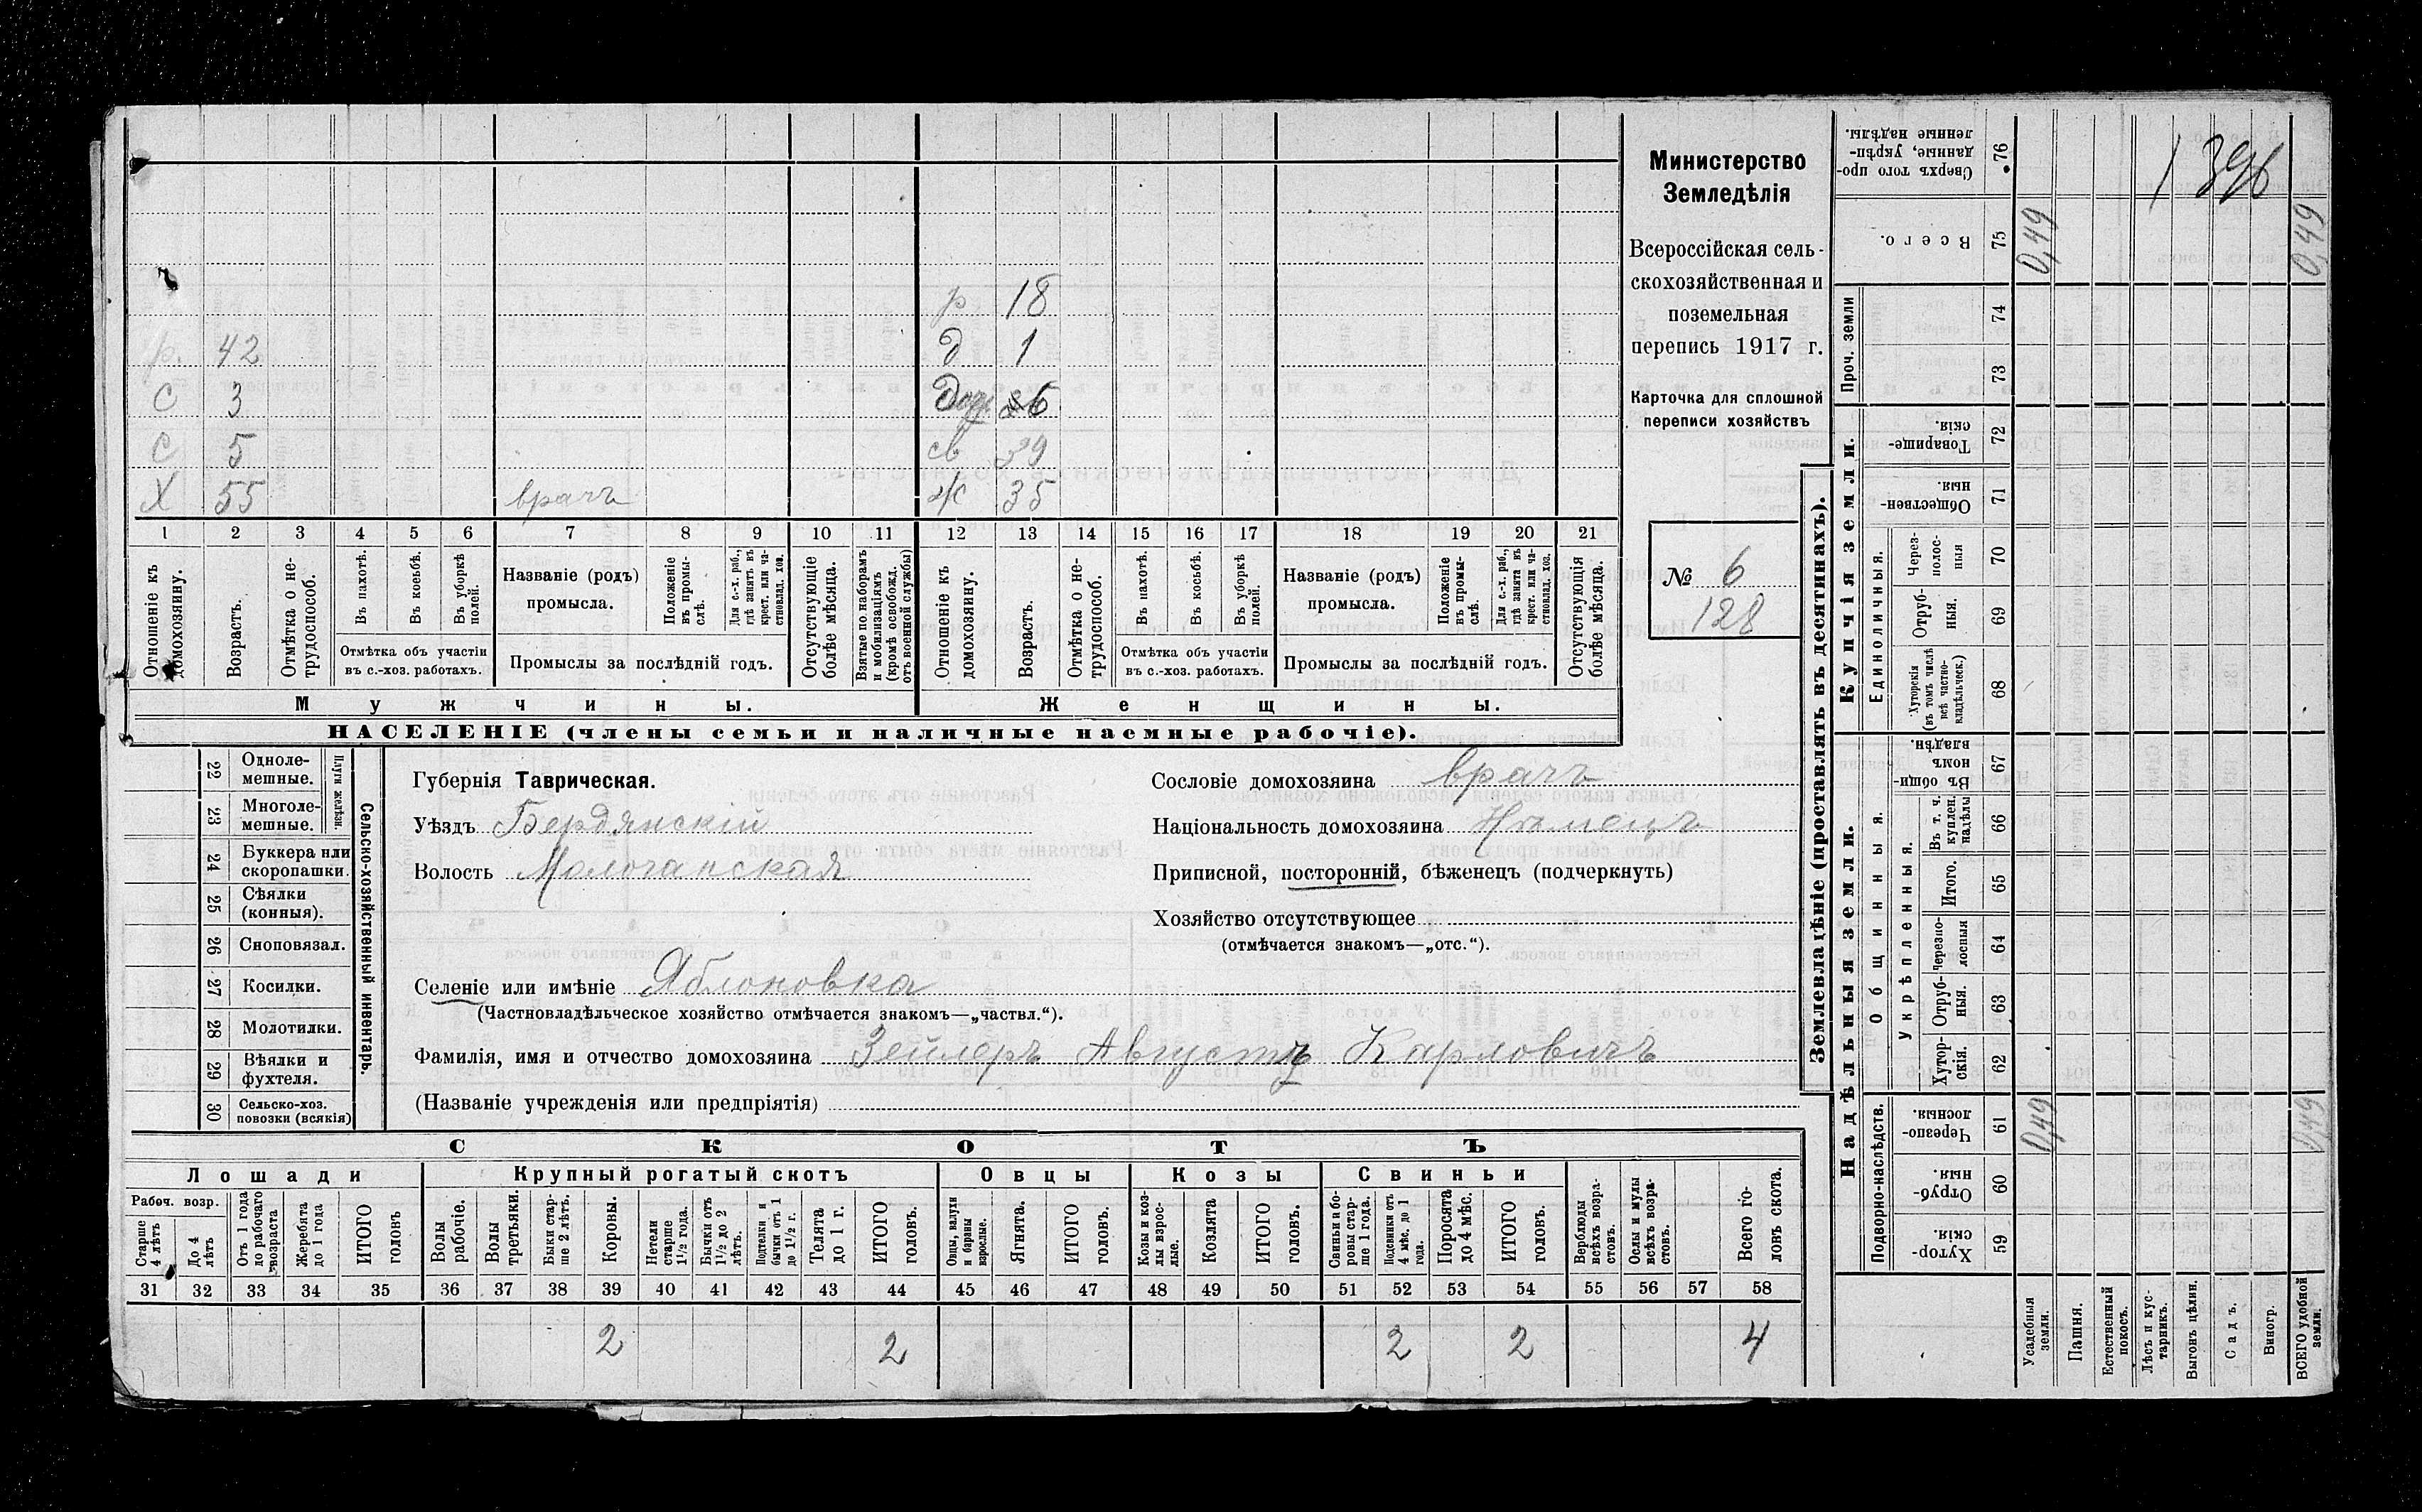 Министерство
Земледѣлія
Всероссійская сель-
скохозяйственная и
поземельная
перепись 1917 г.
Карточка для сплошной
переписи хозяйствъ
№ 6
128
1 396
р 18
р. 42 д 1
С 3 6
С 5 св 39
Х 55 врачъ ж 35
1 2 3 4 5 6 7 8 9 10 11 12 13 14 15 16 17 18 19 20 21
Отношеніе къ домохозяину.
Возрастъ.
Отмѣтка о не-трудоспособ.
Въ пахотѣ.
Въ косьбѣ.
Въ уборкѣ полей.
Отмѣтка объ участіи
въ с.-хоз. работахъ.
Названіе (родъ)
промысла.
Положеніе въ промы-слѣ.
Для с.-х. раб., гдѣ занятъ въ крест. или ча-стновлад. хоз.
Промыслы за послѣдній годъ.
Отсутствующіе болѣе мѣсяца.
Взятые по наборамъ и мобилизаціямъ (кромѣ освобожд. отъ военной службы)
Отношеніе къ домохозяину.
Возрастъ.
Отмѣтка о не-трудоспособ.
Въ пахотѣ.
Въ косьбѣ.
Въ уборкѣ полей.
Отмѣтка объ участіи
въ с.-хоз. работахъ.
Названіе (родъ)
промысла.
Положеніе въ промы-слѣ.
Для с.-х. раб., гдѣ занята въ крест. или ча-стновлад. хоз.
Промыслы за послѣдній годъ.
Отсутствующія болѣе мѣсяца.
Мужчины. Женщины.
НАСЕЛЕНІЕ (члены семьи и наличные наемные рабочіе).
Сельско-хозяйственный инвентарь.
Плуги желѣзн.
22 Одноле-мешные.
23 Многоле-мешные.
24 Буккера или скоропашки.
25 Сѣялки (конныя).
26 Сноповязал.
27 Косилки.
28 Молотилки.
29 Вѣялки и фухтеля.
30 Сельско-хоз. повозки (всякія)
Губернія Таврическая.
Уѣздъ Бердянскій
Волость Молочанская
Селеніе или имѣніе Яблоновка
(Частновладѣльческое хозяйство отмѣчается знакомъ—„частвл.“).
Фамилія, имя и отчество домохозяина Зейлеръ Августъ Карловичъ
(Названіе учрежденія или предпріятія)
Сословіе домохозяина врачъ
Національность домохозяина Нѣмецъ
Приписной, посторонній, бѣженецъ (подчеркнуть)
Хозяйство отсутствующее
(отмѣчается знакомъ—„отс.“).
СКОТЪ
Лошади Крупный рогатый скотъ Овцы Козы Свиньи
Рабоч. возр.
Старше 4 лѣтъ
До 4 лѣтъ
Отъ 1 года до рабочаго возраста
Жеребята до 1 года
ИТОГО головъ
Волы рабочіе.
Волы третьяки.
Быки стар-ше 2 лѣтъ.
Коровы.
Нетели старше 1½ года.
Бычки отъ 1½ до 2 лѣтъ.
Подтелки и бычки отъ 1 до 1½ г.
Телята до 1 г.
ИТОГО головъ.
Овцы, валухи и бараны взрослые.
Ягнята.
ИТОГО головъ.
Козы и коз-лы взрос-лые.
Козлята
ИТОГО головъ.
Свиньи и бо-ровы стар-ше 1 года.
Подсвинки отъ 4 мѣс. до 1 года.
Поросята до 4 мѣс.
ИТОГО головъ.
Верблюды всѣхъ возра-стовъ.
Ослы и мулы всѣхъ возра-стовъ.
Всего го-ловъ скота.
31 32 33 34 35 36 37 38 39 40 41 42 43 44 45 46 47 48 49 50 51 52 53 54 55 56 57 58
2 2 2 2 4
Землевладѣніе (проставлять въ десятинахъ).
Надѣльныя земли. Купчія земли.
Проч. земли
Подворно-наслѣдств.
Общинныя.
Укрѣпленныя.
Единоличныя.
76 Сверхъ того про-данные, укрѣп-ленные надѣлы.
75 Всего. 0,49 0,49
74
73
72 Товарище-скія.
71 Обществен-ныя.
70 Через-полос-ныя
69 Отруб-ныя.
68 Хуторскія (въ томъ числѣ всѣ частно-владѣльческ.)
67 Въ общин-номъ владѣн.
66 Въ т. ч. куплен. надѣлы
65 Итого.
64 Черезпо-лосныя
63 Отруб-ныя.
62 Хутор-скія.
61 Черезпо-лосныя. 0,49 0,49
60 Отруб-ныя.
59 Хутор-скія.
Усадебныя земли.
Пашня.
Естественный покосъ.
Лѣсъ и кус-тарникъ.
Выгонъ цѣлин.
Садъ.
Виногр.
ВСЕГО удобной земли.